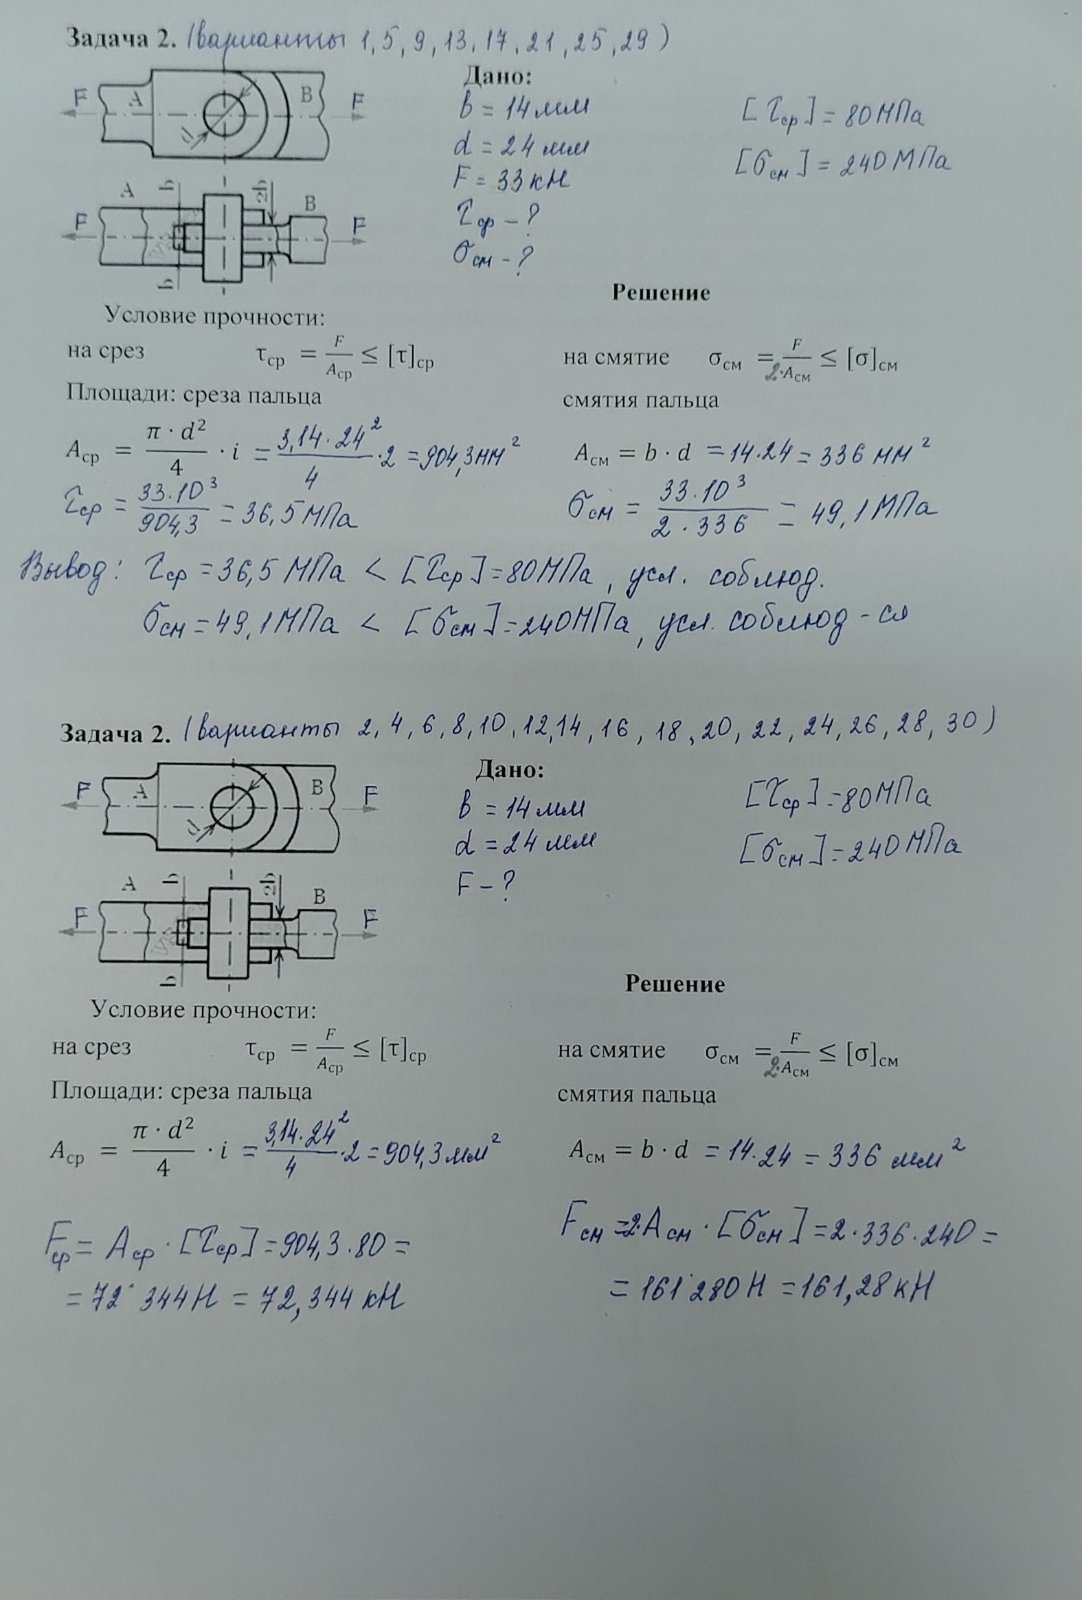 Задача 2. (варианты 1, 5, 9, 13, 17, 21, 25, 29)
F A B F
d
Дано:
b = 14 мм
d = 24 мм
F = 33 кН
τср - ?
σсм - ?
[τср] = 80 МПа
[σсм] = 240 МПа
A b 2b B
F F
b
Решение
Условие прочности:
на срез τср = F/Aср ≤ [τ]ср на смятие σсм = F/2·Aсм ≤ [σ]см
Площади: среза пальца смятия пальца
Aср = π · d²/4 · i = 3,14·24²/4 · 2 = 904,3 мм² Aсм = b · d = 14·24 = 336 мм²
τср = 33·10³/904,3 = 36,5 МПа σсм = 33·10³/2·336 = 49,1 МПа
Вывод: τср = 36,5 МПа < [τср] = 80 МПа, усл. соблюд.
σсм = 49,1 МПа < [σсм] = 240 МПа, усл. соблюд-ся
Задача 2. (варианты 2, 4, 6, 8, 10, 12, 14, 16, 18, 20, 22, 24, 26, 28, 30)
F A B F
d
Дано:
b = 14 мм
d = 24 мм
F - ?
[τср] = 80 МПа
[σсм] = 240 МПа
A b 2b B
F F
b
Решение
Условие прочности:
на срез τср = F/Aср ≤ [τ]ср на смятие σсм = F/2·Aсм ≤ [σ]см
Площади: среза пальца смятия пальца
Aср = π · d²/4 · i = 3,14·24²/4 · 2 = 904,3 мм² Aсм = b · d = 14·24 = 336 мм²
Fср = Aср · [τср] = 904,3·80 = Fсм = 2·Aсм · [σсм] = 2·336·240 =
= 72˙344 Н = 72,344 кН = 161˙280 Н = 161,28 кН